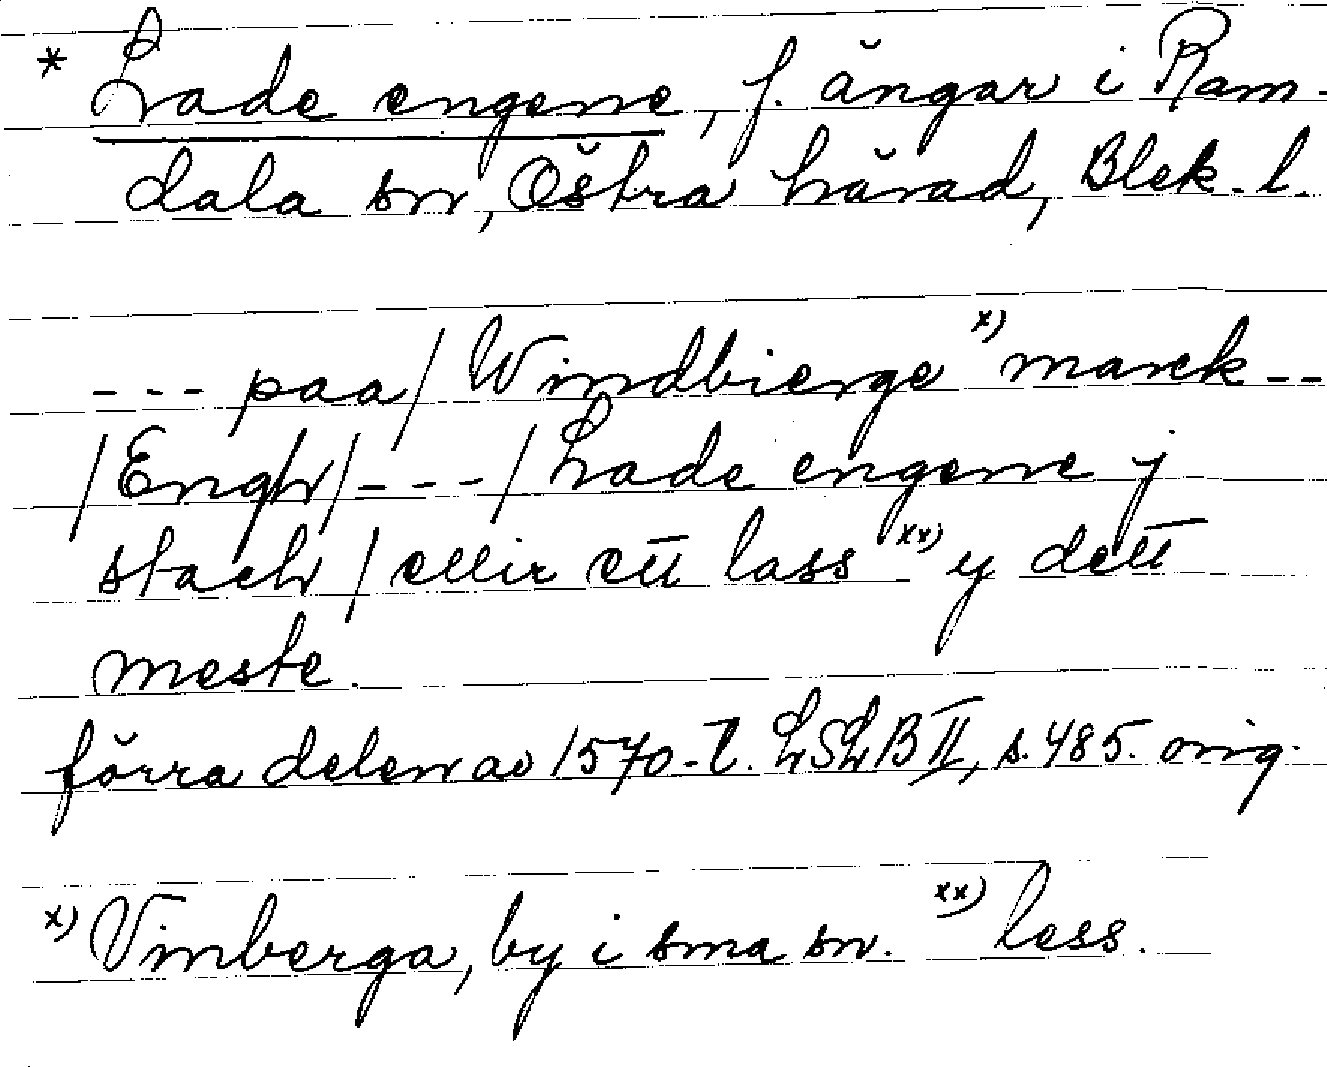 * Lade engene, f. ängar i Ram-
dala sn, Östra härad, Blek. l.
--- paa / Windbierge x) marck --
/ Engh / --- / Lade engene j
stach / ellir ett lass xx) y dett
meste.
förra delen av 1570-t. LSLB II, s. 485. orig.
x) Vinberga, by i sma sn. xx) less.